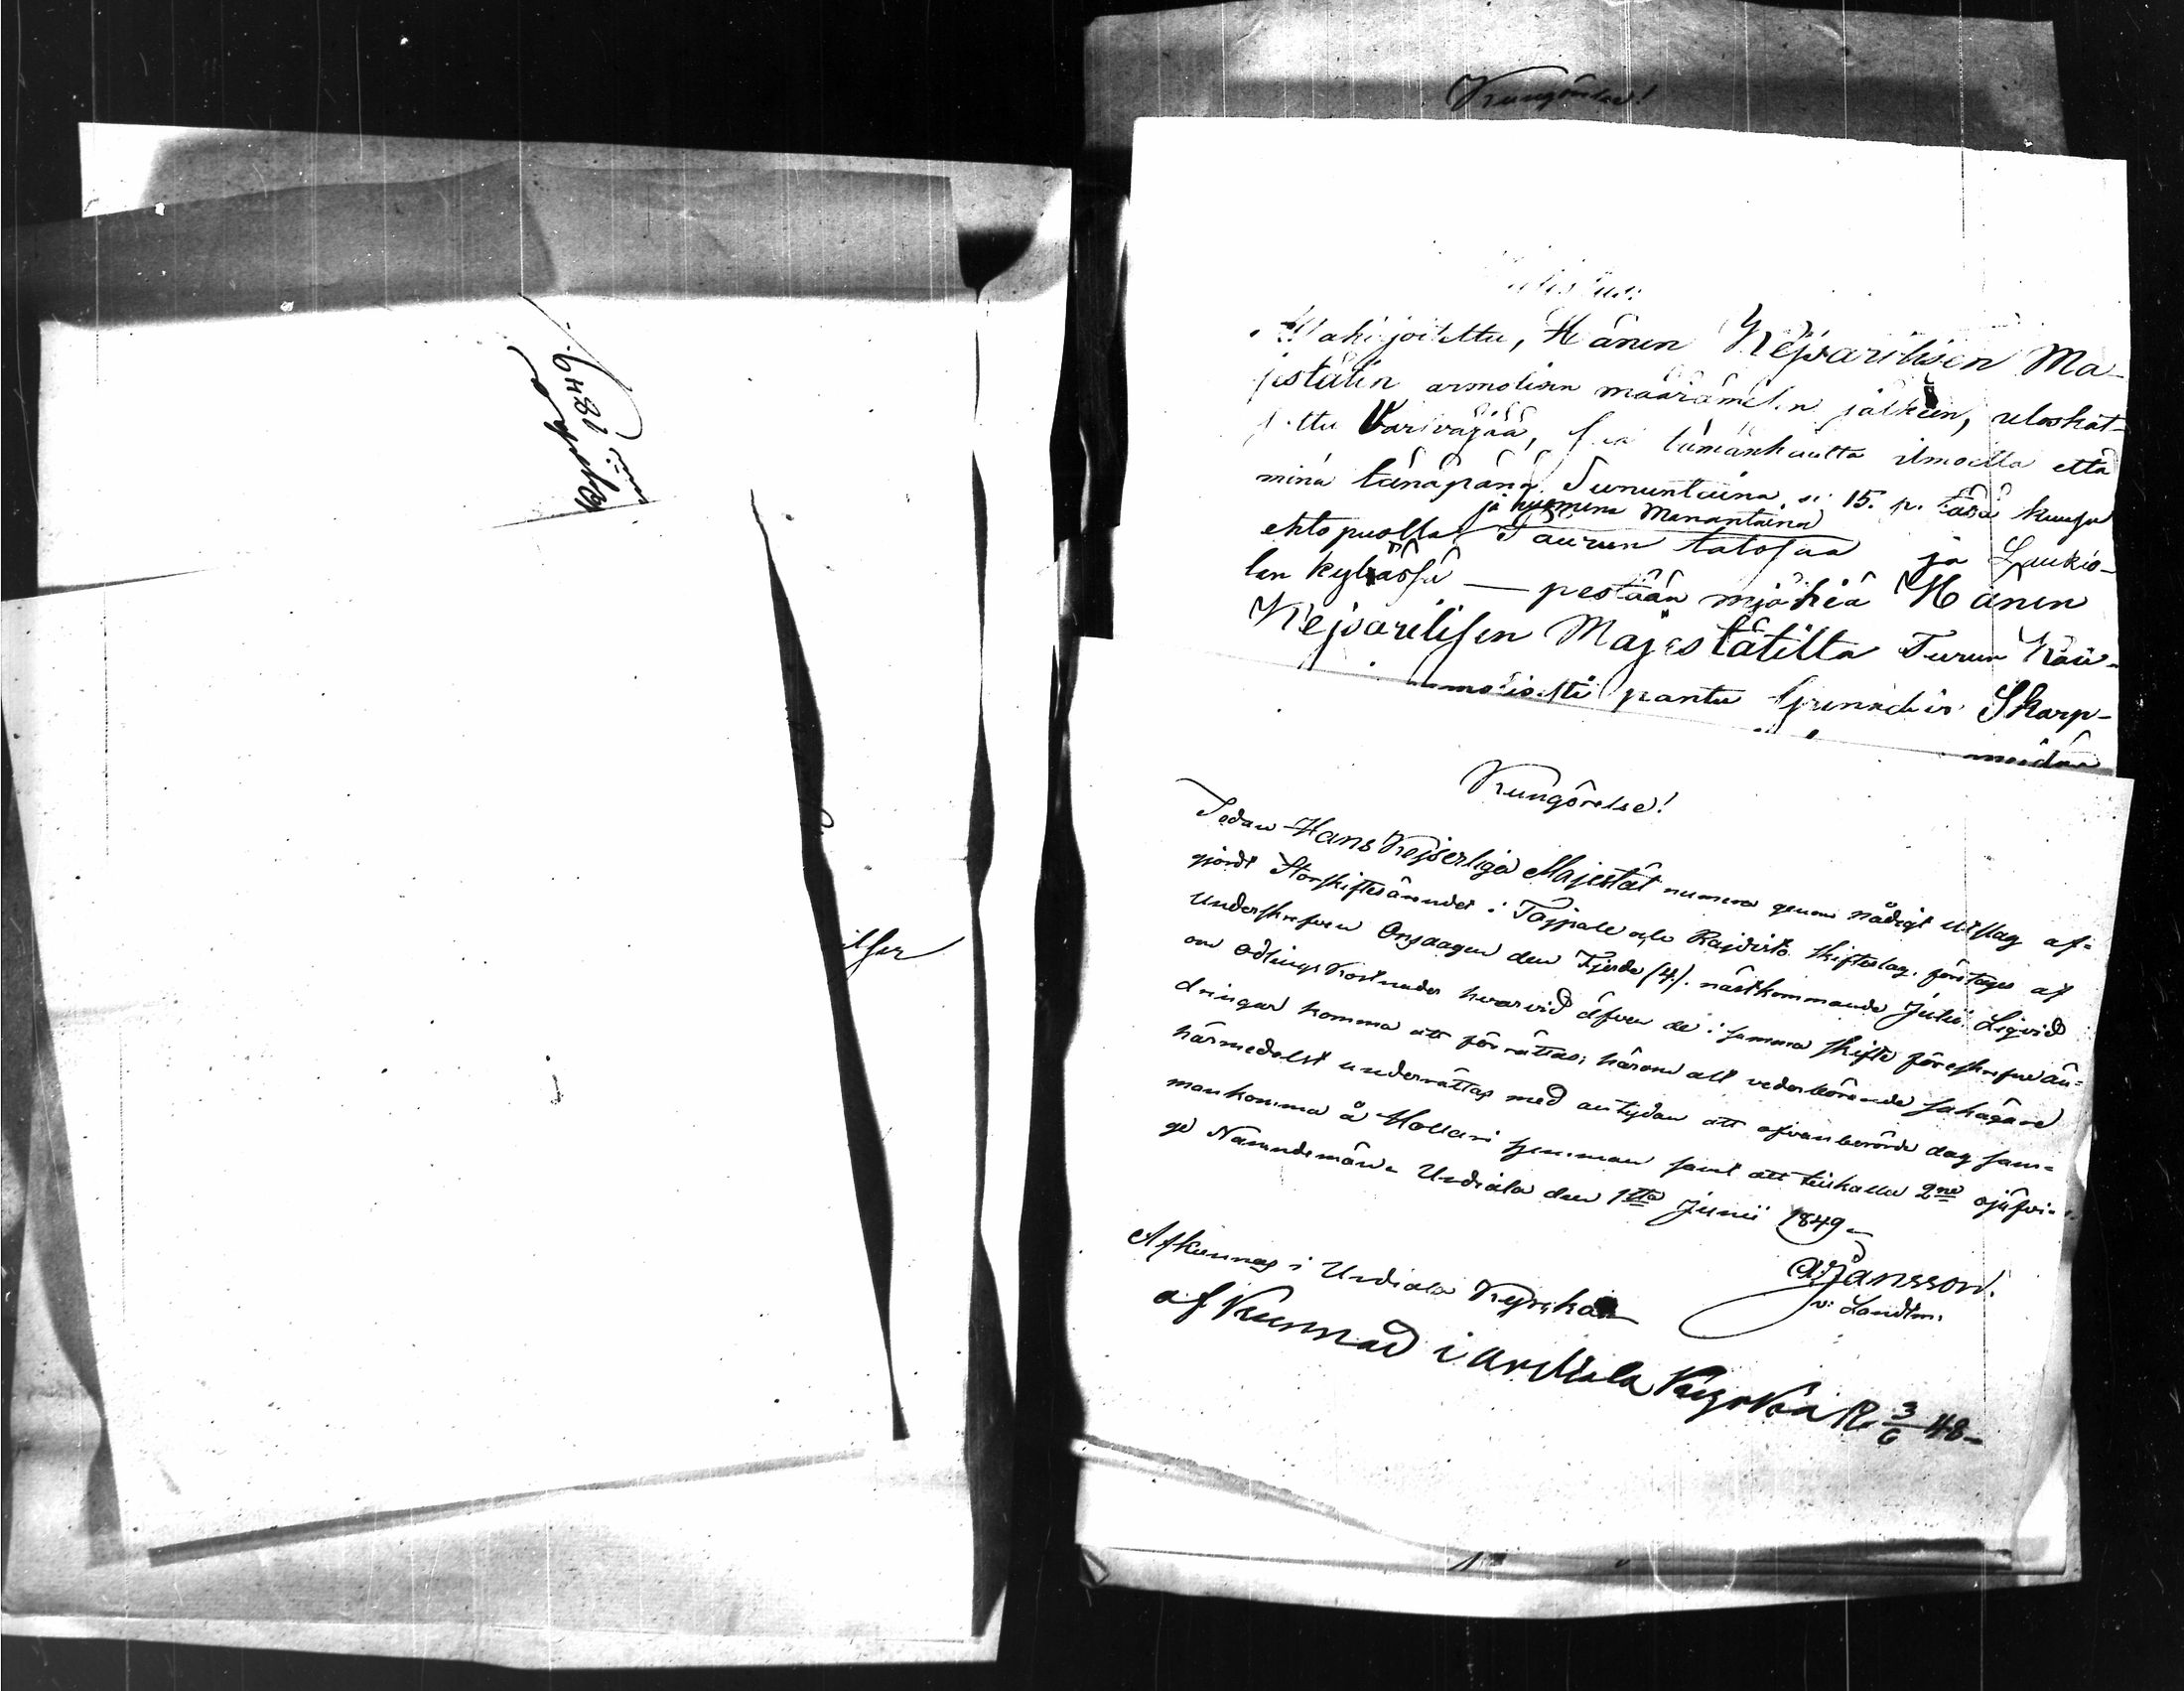 1849.
ilser
Kungörelse!
Kulistus.
Allakirjoitettu, Hänen Kejsarilisen Ma-
jestätin armolisen määrämisen jälkeen, uloskat-
sottu Karivärjää, saa tämänkautta ilmoitta että
minä tänäpänä Sununtaina se 15. p. täsä kuusa
ja huomena Manantaina
ehtopuolla Taurun talosaa ja Laukio-
len kyläsä — pestään mjähiä Hänen
Kejsarilisen Majestätiltä Turun Lää-
armolisesti pantu Grenadier Skarp-
meidän
Kungörelse!
Sedan Hans Kejserliga Majestät numera genom nådigt utslag af-
gjordt Storskiftesärendet i Taipale och Rajoisto skifteslag, företages af
underskrefven Onsdagen den Fjerde (4). nästkommande Julii. Liqvid
om odlings kostnader hvarvid äfven de i samma skifte föreskrefne än-
dringar komma att förrättas; härom alle vederbörande sakägare
härmedelst underrättas med antydan att ofvanberörde dag sam-
mankomma å Hollari hemman samt att tillkalla 2ne ojäfvi-
ge Nämndemän. Urdiala den 1sta Junii 1849.
A. Jansson.
v: Landtm.
Afkunnas i Urdiala Kyrka
af Kunnad i Urdiala Kyrka R. 3/6 48-